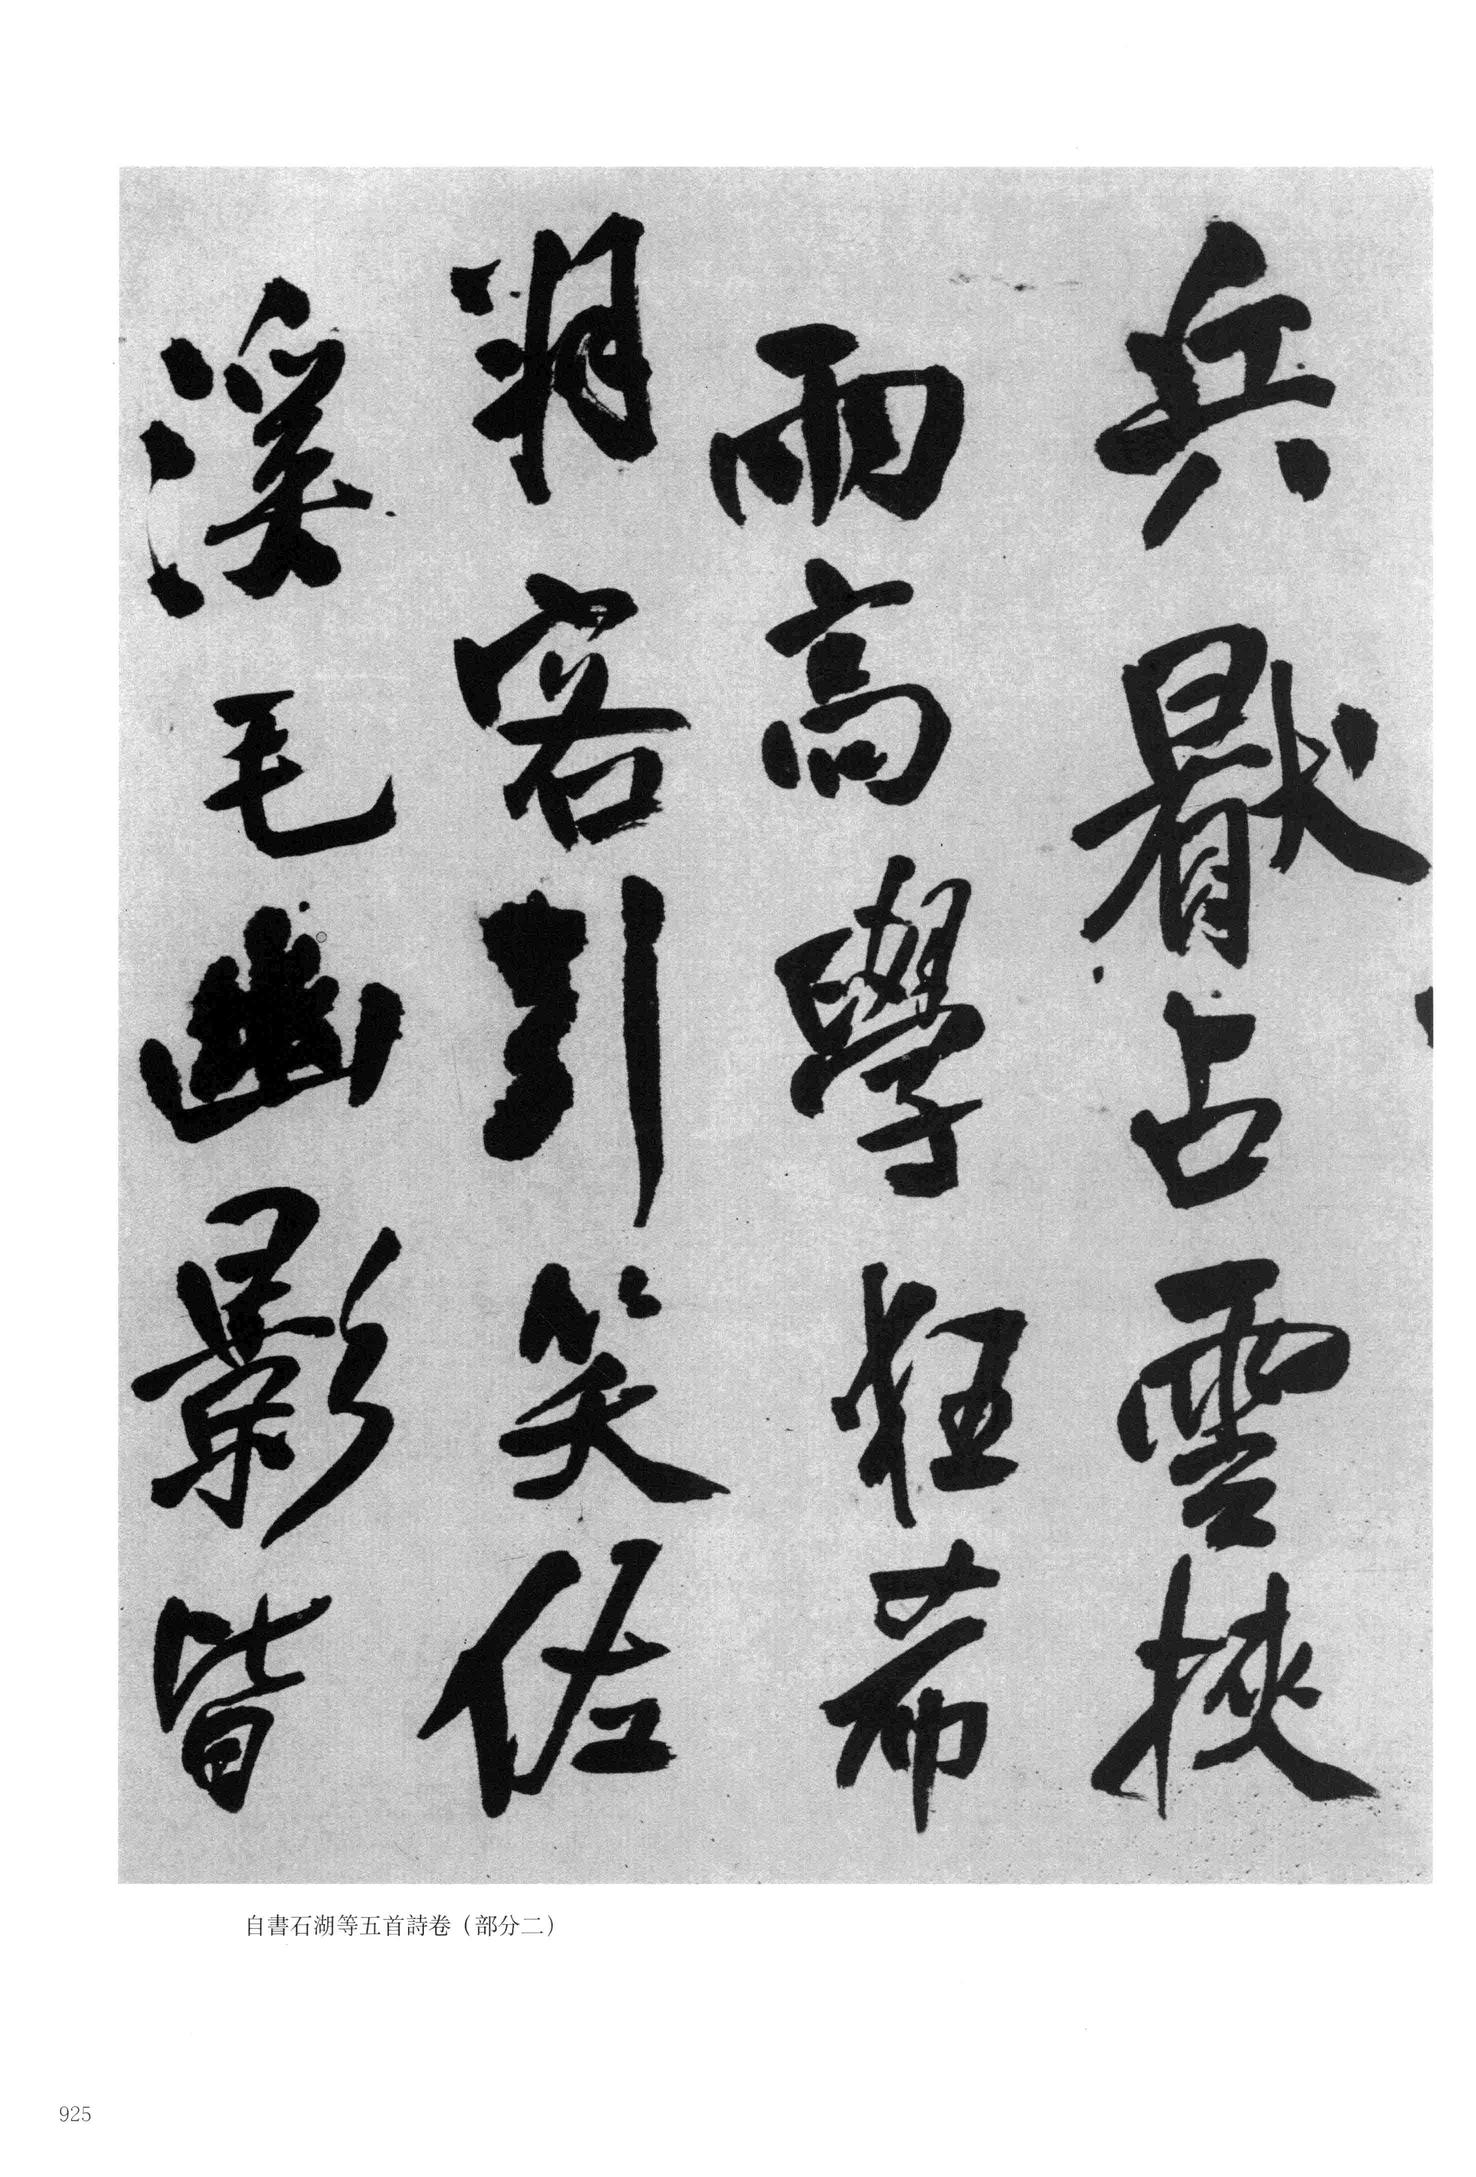 兵厭占雲挾
雨高學狂希
朔客引笑佐
溪毛幽影皆
自書石湖等五首詩卷（部分二）
925